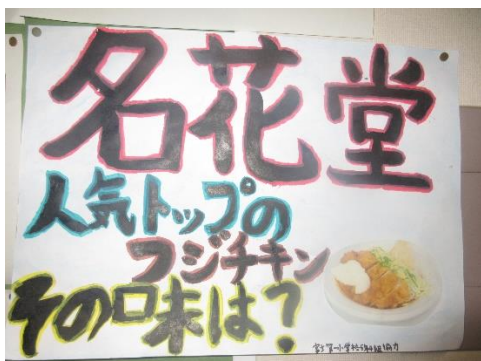 名花堂
人気トップの
フジチキン
その味は?